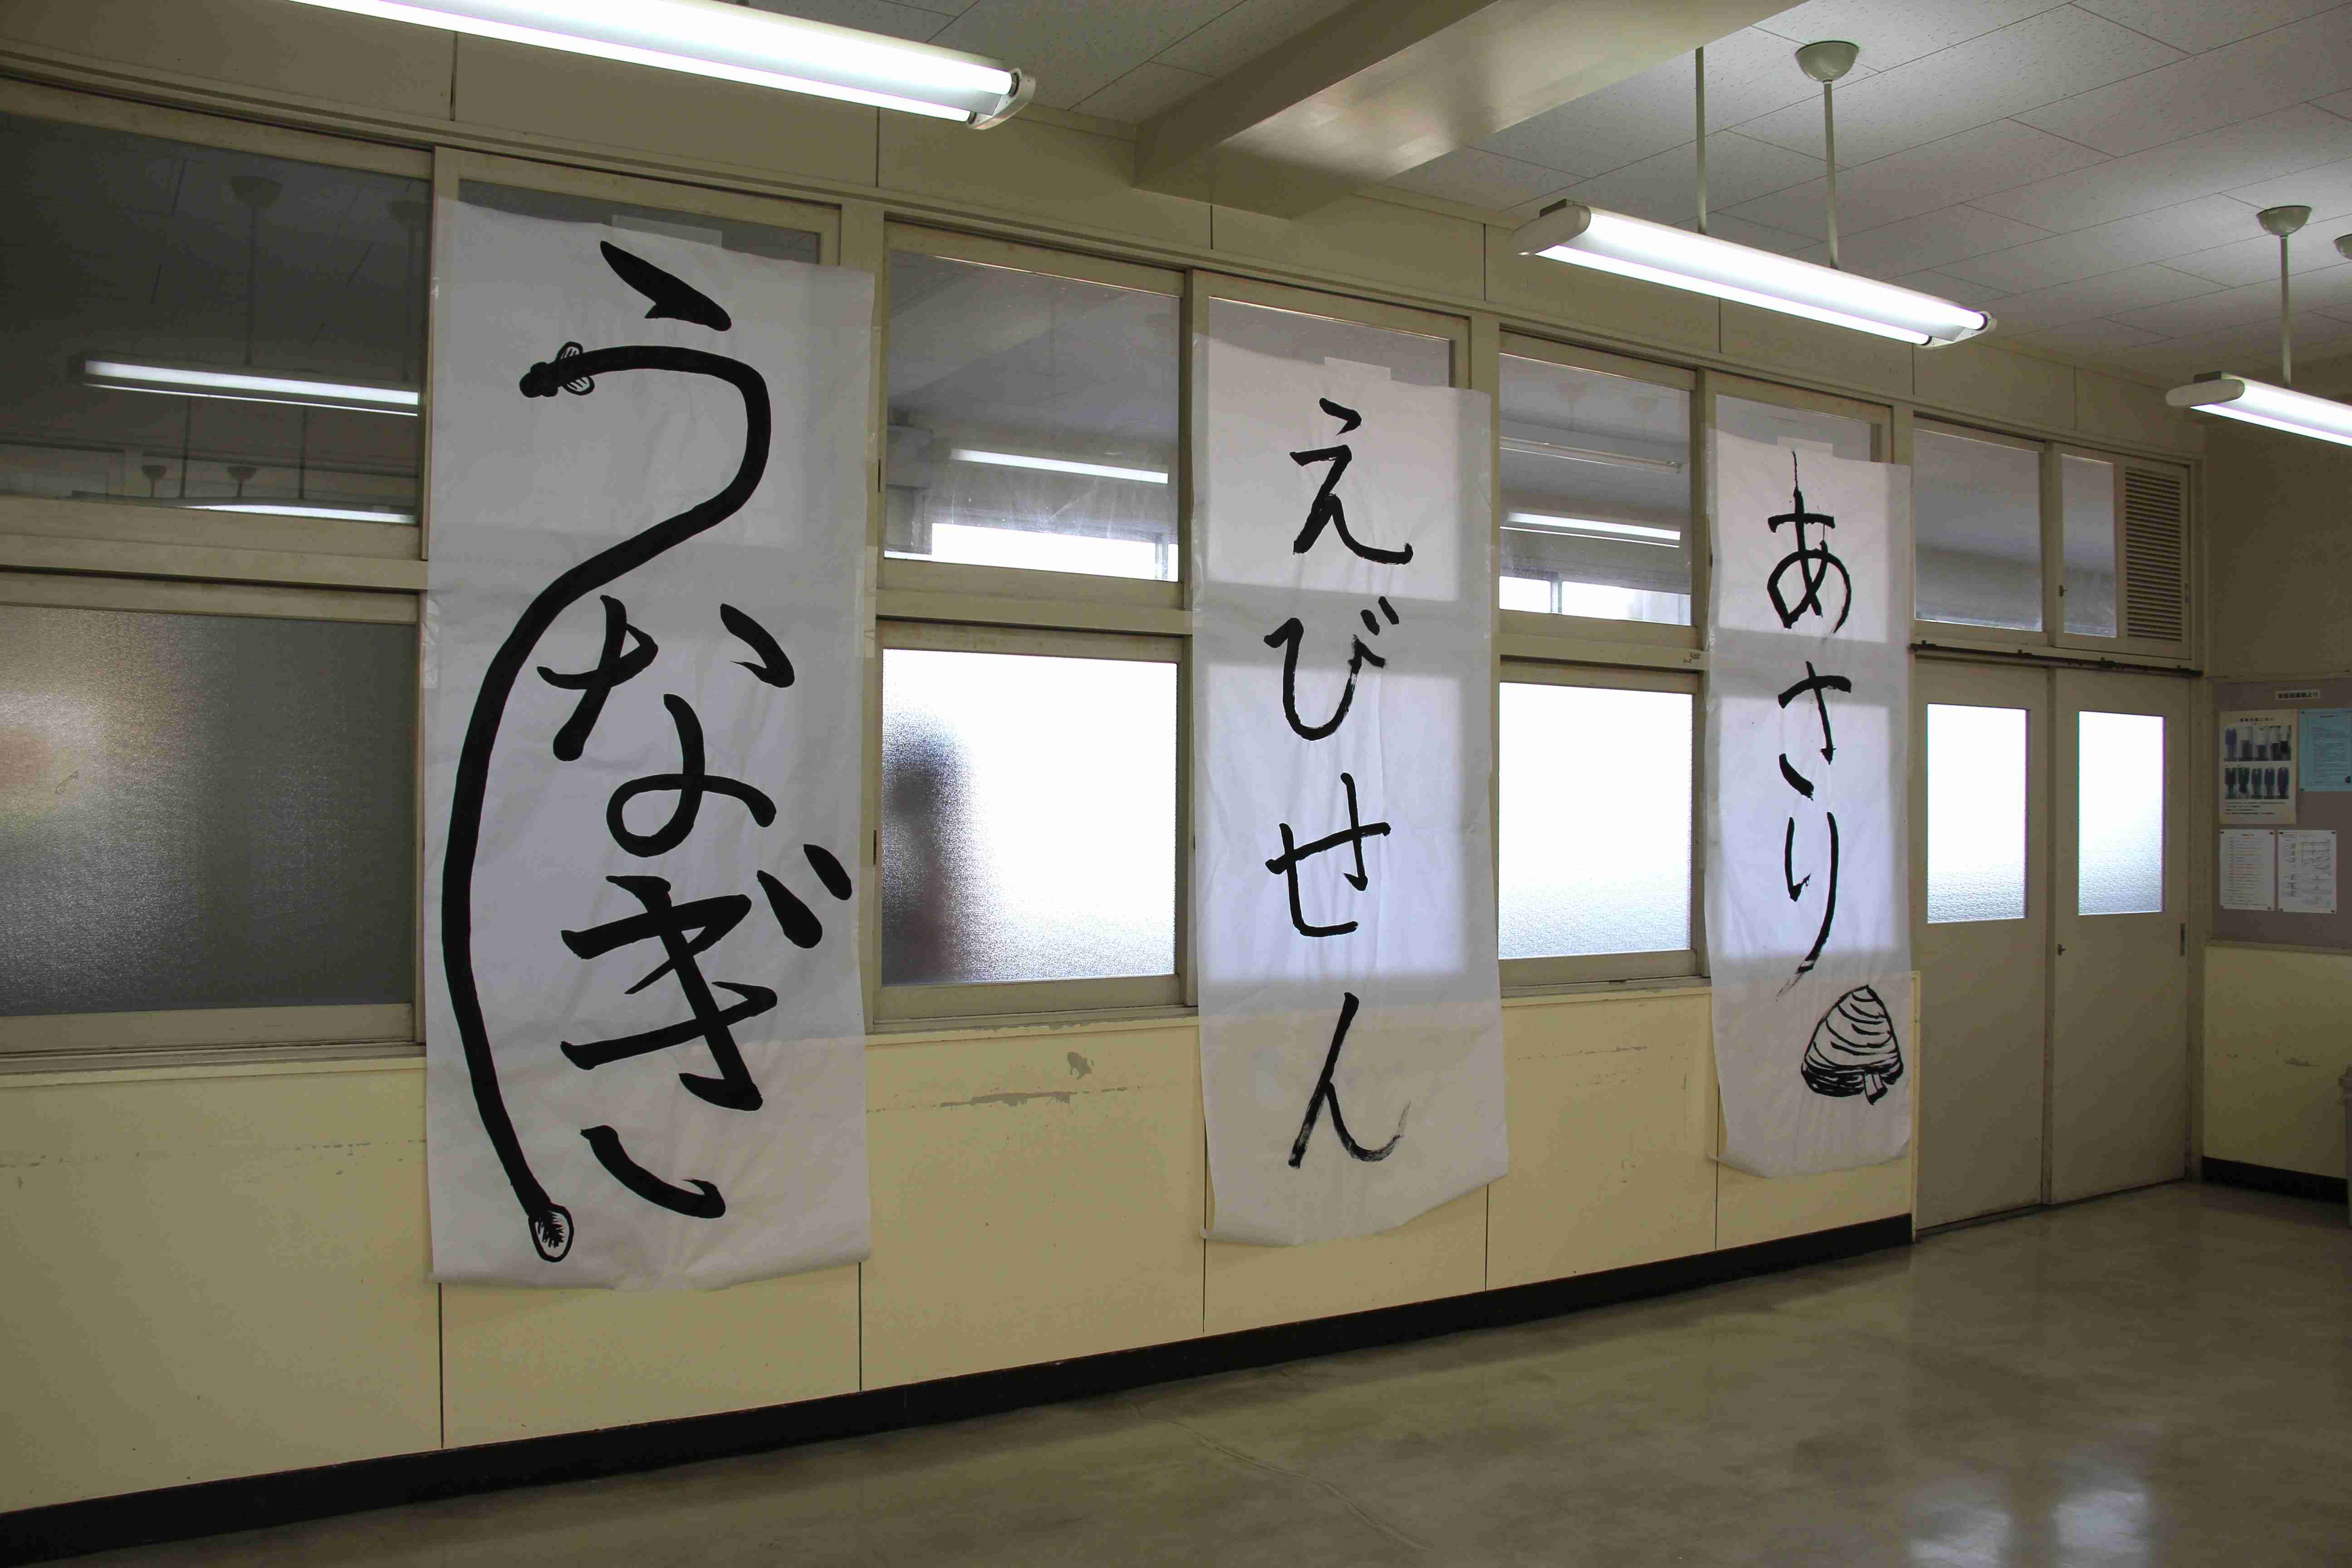 うなぎ
えびせん
あさり